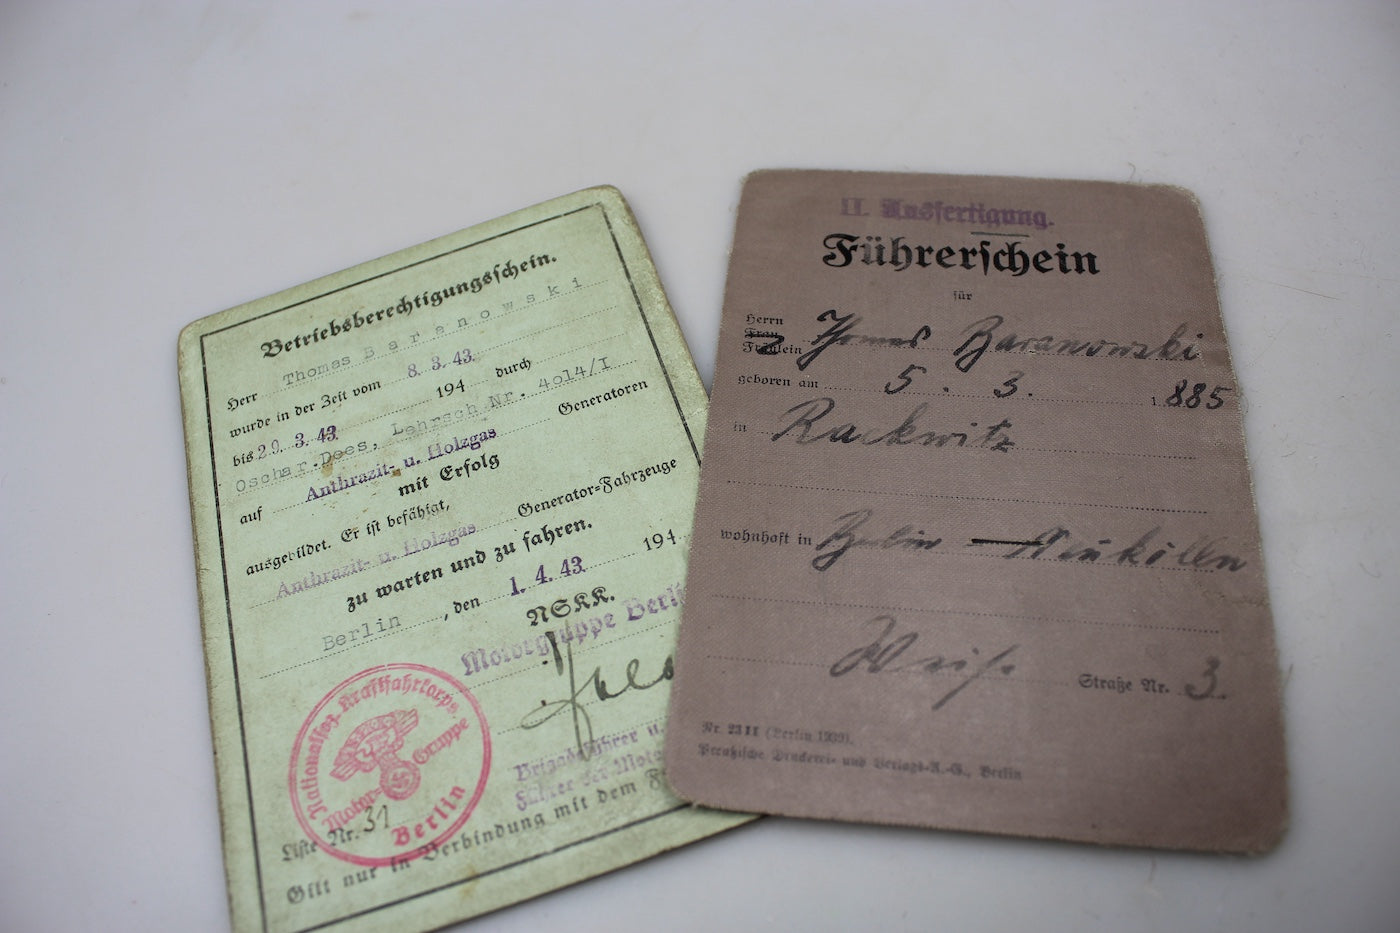 Betriebsberechtigungsschein.
Herr Thomas Baranowski
wurde in der Zeit vom 8. 3. 43.
bis 29. 3. 43 194 durch
Oschar.Dees, Lehrsch Nr. 4014/I
auf Anthrazit- u. Holzgas Generatoren
mit Erfolg
ausgebildet. Er ist befähigt,
Anthrazit- u. Holzgas Generator=Fahrzeuge
zu warten und zu fahren.
Berlin, den 1. 4. 43 194
NSKK.
Motorgruppe Berlin
Brigadeführer u.
Führer der Moto
Nationalsoz. Kraftfahrkorps.
Motor= Gruppe
Berlin
Liste Nr. 31
Gilt nur in Verbindung mit dem F
II. Ausfertigung.
Führerschein
für
Herrn
Frau
Fräulein
Thomas Baranowski
geboren am 5. 3. 1885
in Rackwitz
wohnhaft in Berlin — Neukölln
Weise Straße Nr. 3
Nr. 2311 (Berlin 1939).
Preußische Druckerei- und Verlags-A.-G., Berlin